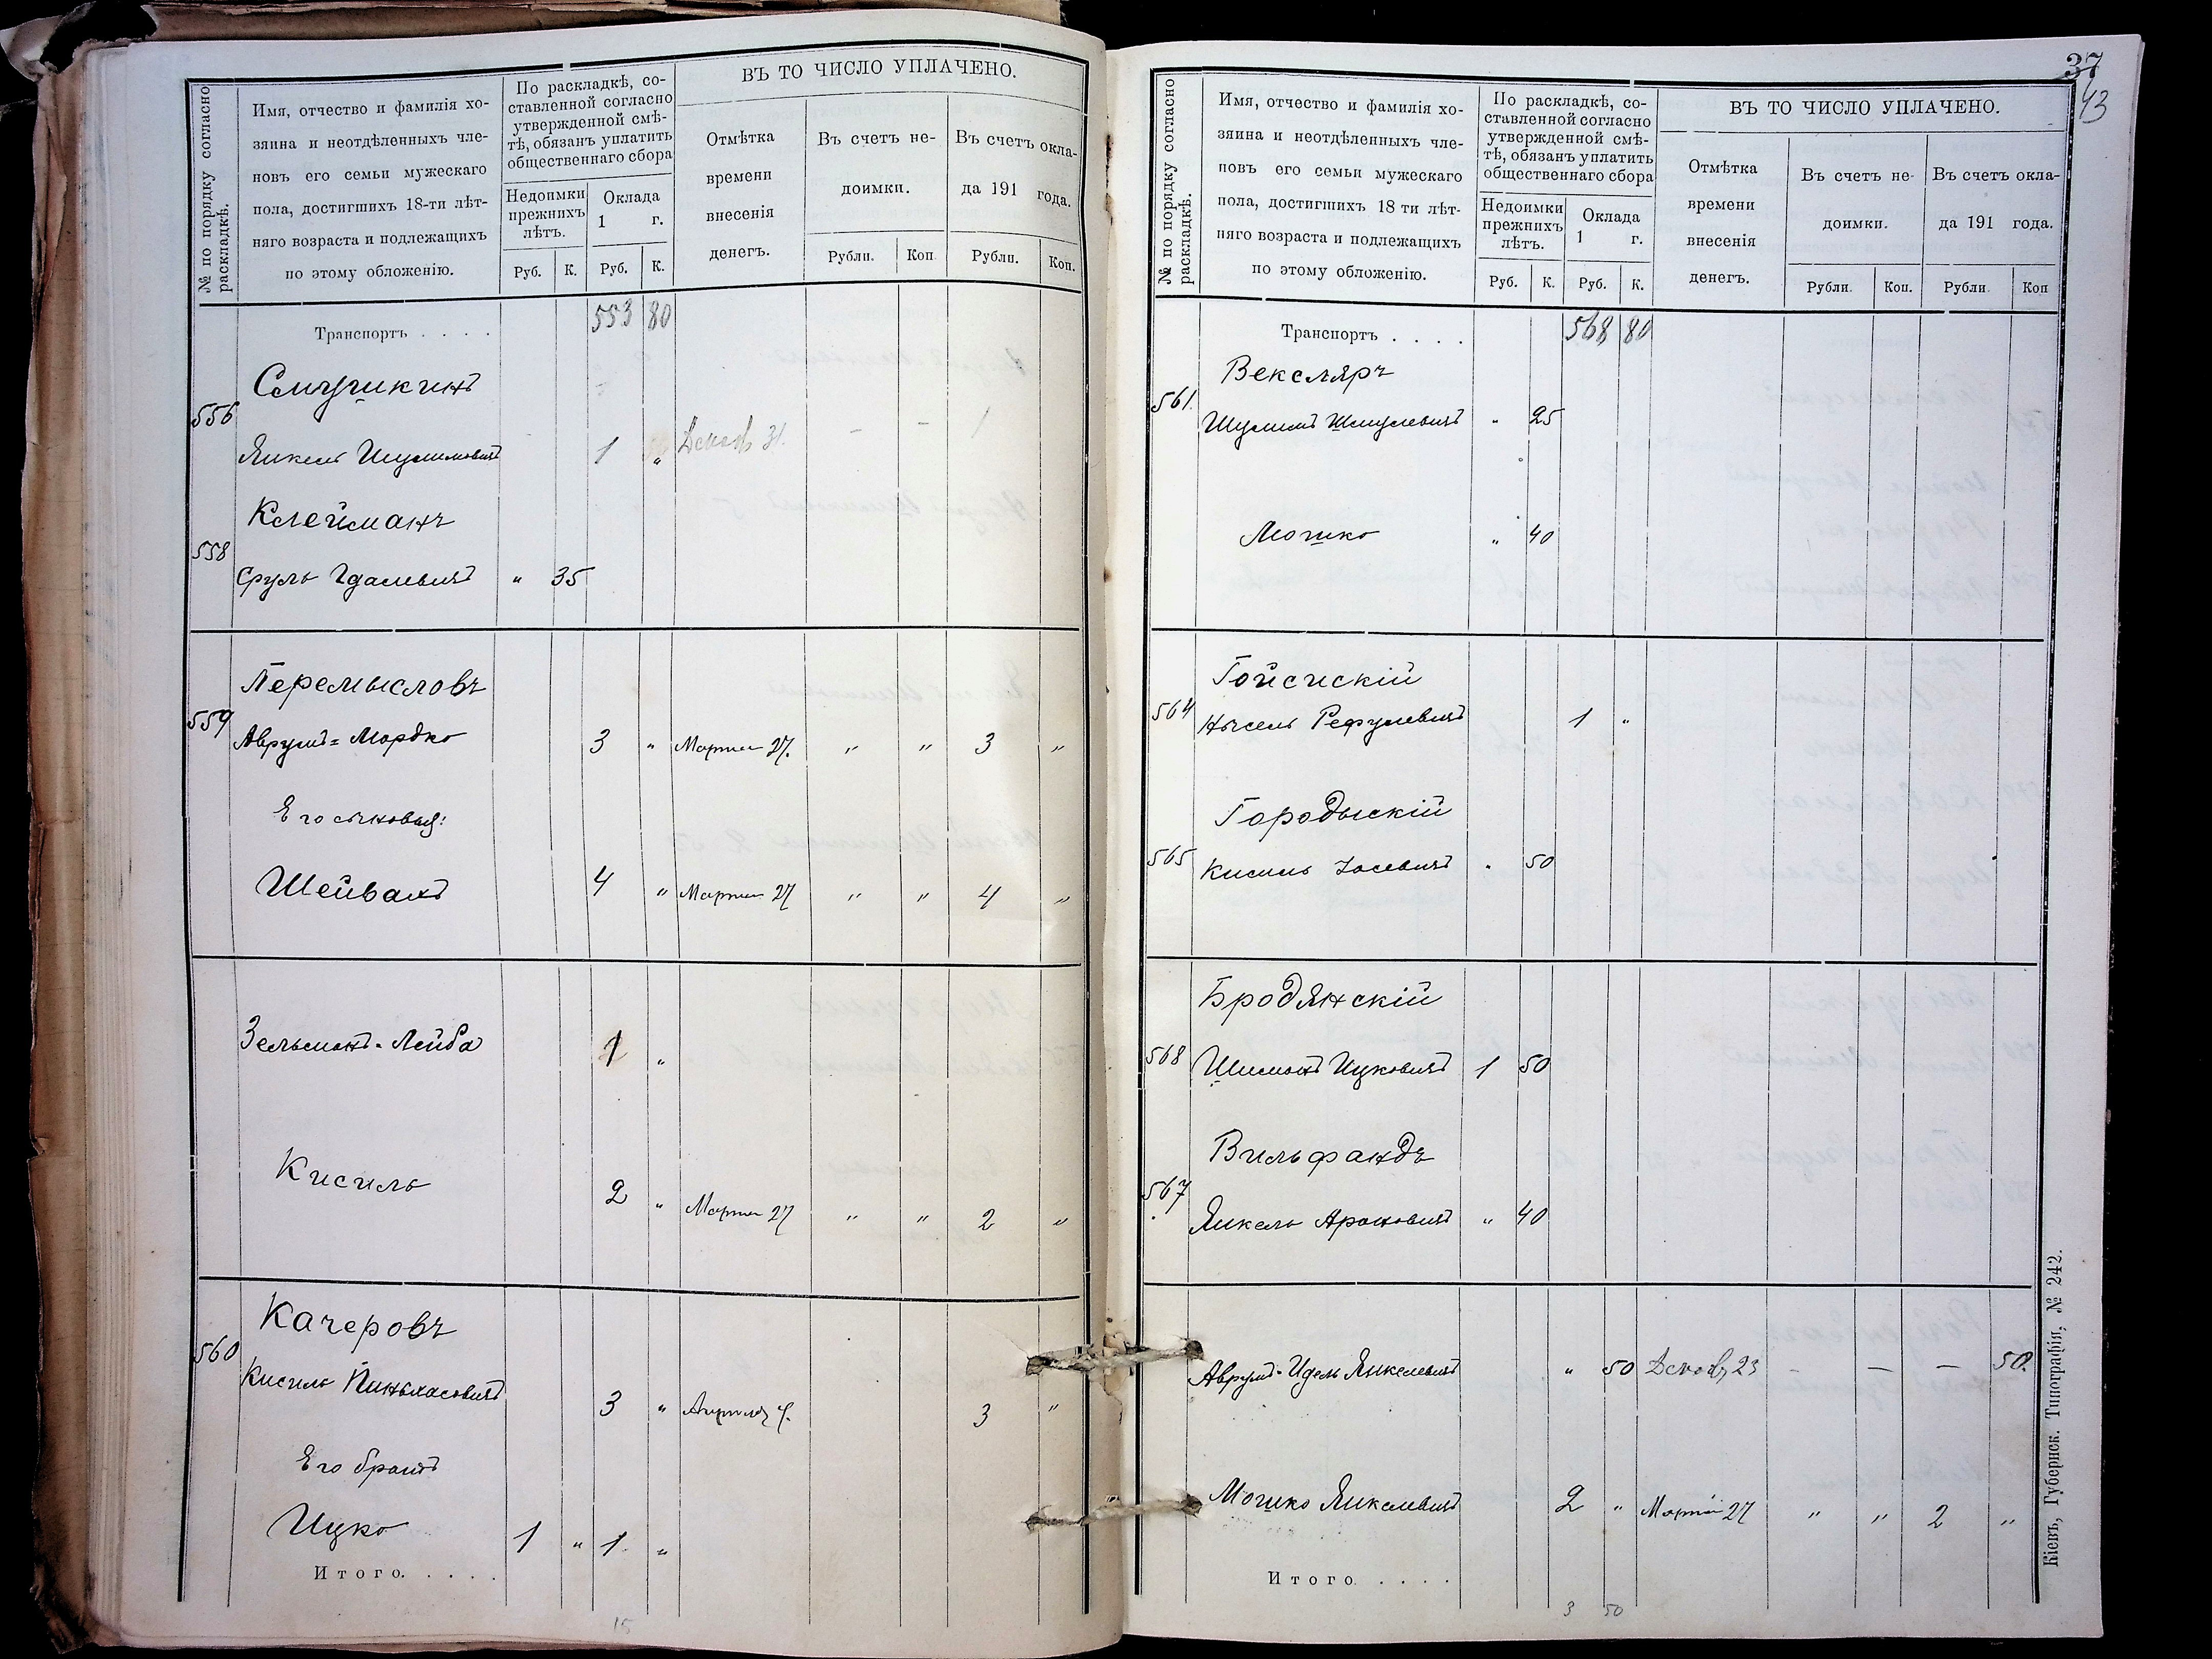 № по порядку согласно раскладкѣ.
Имя, отчество и фамилія хо-
зяина и неотдѣленныхъ чле-
новъ его семьи мужескаго
пола, достигшихъ 18-ти лѣт-
няго возраста и подлежащихъ
по этому обложенію.
По раскладкѣ, со-
ставленной согласно
утвержденной смѣ-
тѣ, обязанъ уплатить
общественнаго сбора
Недоимки прежнихъ лѣтъ.
Оклада 1 г.
Руб. К. Руб. К.
ВЪ ТО ЧИСЛО УПЛАЧЕНО.
Отмѣтка
времени
внесенія
денегъ.
Въ счетъ не-
доимки.
Въ счетъ окла-
да 191 года.
Рубли. Коп Рубли. Коп.
Транспортъ . . . . 553 80
Смушкинъ
556
Янкель Шулимовичъ 1 „ Декабр 31. – – 1
Клейманъ
558
Сруль Гдалевичъ „ 35
Перемысловъ
559
Аврумъ=Мордко 3 „ Марта 27. „ „ 3 „
Его сыновья:
Шейвахъ 4 „ Марта 27 „ „ 4 „
Зельманъ-Лейба 1 „
Кисиль 2 „ Марта 27 „ „ 2 „
Качеровъ
560
Кисиль Пинхасовичъ 3 „ Апрѣля 4. 3 „
Его братъ
Ицко 1 „ 1. „
Итого. . . . .
15
37
43
№ по порядку согласно раскладкѣ.
Имя, отчество и фамилія хо-
зяина и неотдѣленныхъ чле-
новъ его семьи мужескаго
пола, достигшихъ 18 ти лѣт-
няго возраста и подлежащихъ
по этому обложенію.
По раскладкѣ, со-
ставленной согласно
утвержденной смѣ-
тѣ, обязанъ уплатить
общественнаго сбора
Недоимки прежнихъ лѣтъ.
Оклада 1 г.
Руб. К. Руб. К.
ВЪ ТО ЧИСЛО УПЛАЧЕНО.
Отмѣтка
времени
внесенія
денегъ.
Въ счетъ не-
доимки.
Въ счетъ окла-
да 191 года.
Рубли. Коп. Рубли. Коп
Транспортъ . . . . 568 80
Вексляръ
561.
Шулимъ Шмулевичъ „ 25
Мошко „ 40
Гойсискій
564
Нысель Рефулевичъ 1 „
Городыскій
565
Кисиль Іосевичъ „ 50
Бродянскій
568
Шимонъ Ицковичъ 1 50
Вильфандъ
567
Янкель Ароновичъ „ 40
Аврумъ-Идель Янкелевичъ „ 50 Декабр 23 – – – 50.
Мошко Янкелевичъ 2 „ Марта 27 „ „ 2 „
Итого . . . .
3 50
Кіевъ, Губернск. Типографія, № 242.